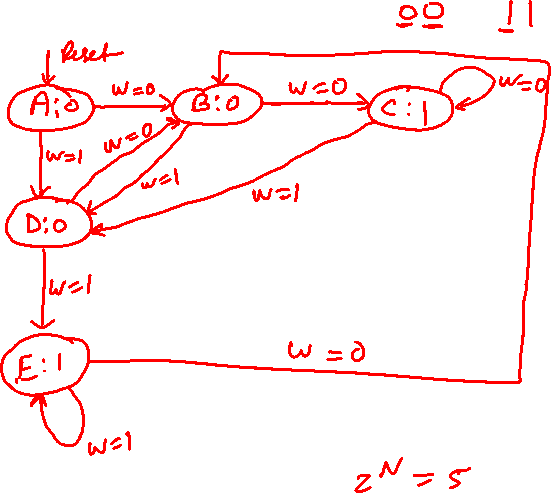 00 11
Reset
A:0 w=0 B:0 w=0 C:1 w=0
w=1 w=0 w=1 w=1
D:0
w=1
E:1 w=0
w=1
2^N = 5